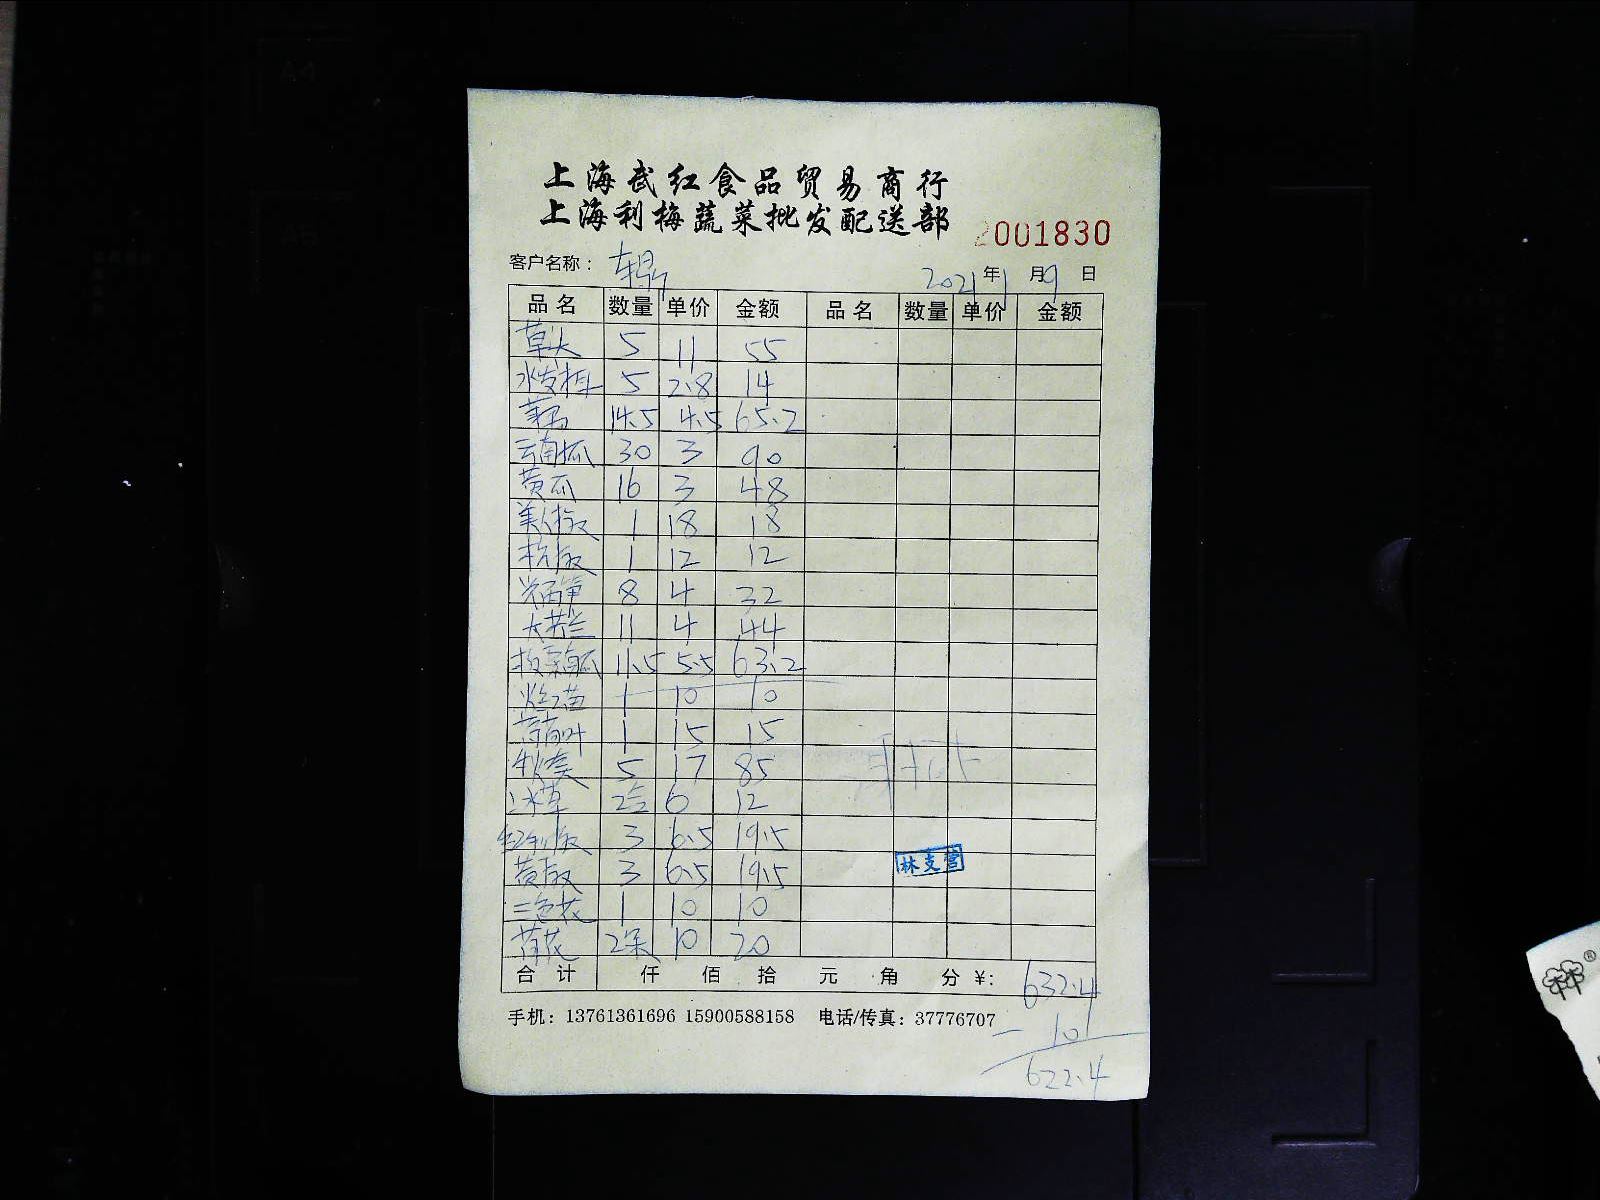 上海武红食品贸易商行
上海利梅蔬菜批发配送部
2001830
客户名称： 2021年1月9日
品名 数量 单价 金额 品名 数量 单价 金额
草头 5 11 55
水发 5 2.8 14
14.5 4.5 65.2
云南瓜 30 3 90
黄瓜 16 3 48
美人椒 1 18 18
杭椒 1 12 12
8 4 32
大芥兰 11 4 44
板栗南瓜 11.5 5.5 63.2
苗 1 10 10
叶 1 15 15
秋葵 5 17 85
冰草 2盒 6 12
红 椒 3 6.5 19.5
黄椒 3 6.5 19.5
三色花 1 10 10
荷花 2朵 10 20
林支营
合计 仟 佰 拾 元 角 分 ¥: 632.4
手机：13761361696 15900588158 电话/传真：37776707
- 10
622.4
A4
A5